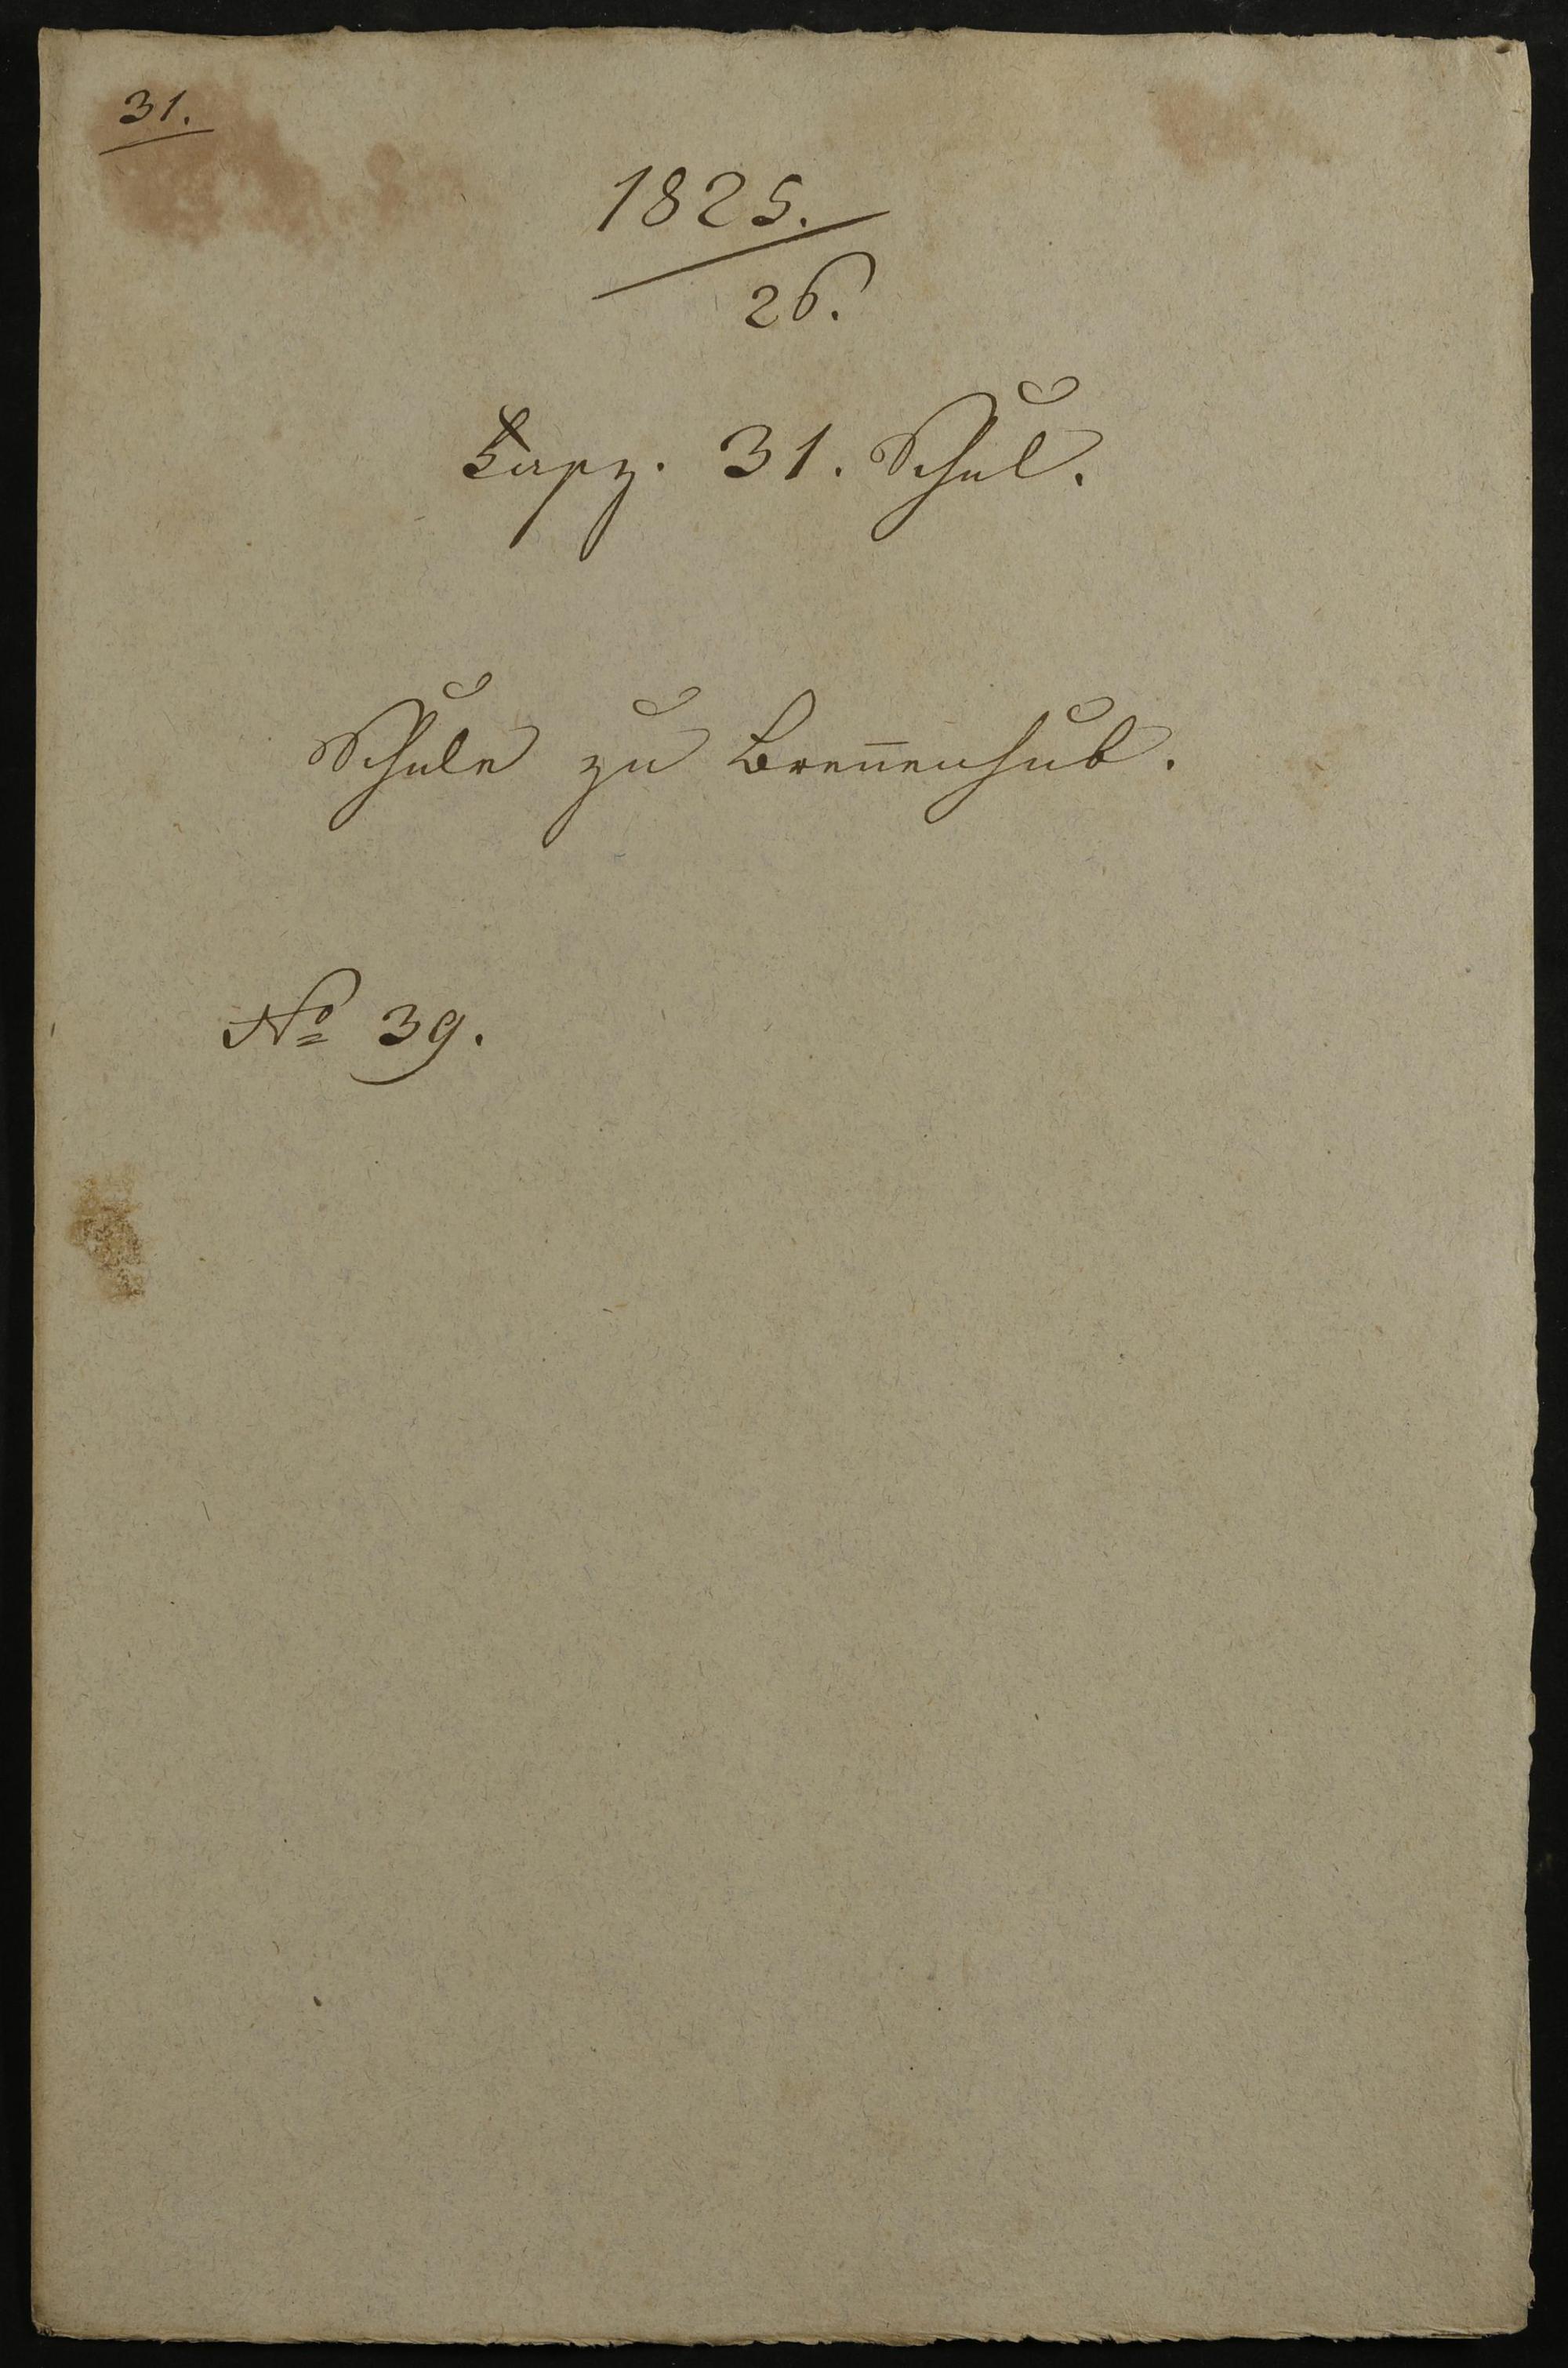 31.
1825.
26.
Fasz. 31. Schul.
Schule zu Breñenhub.
No 39.